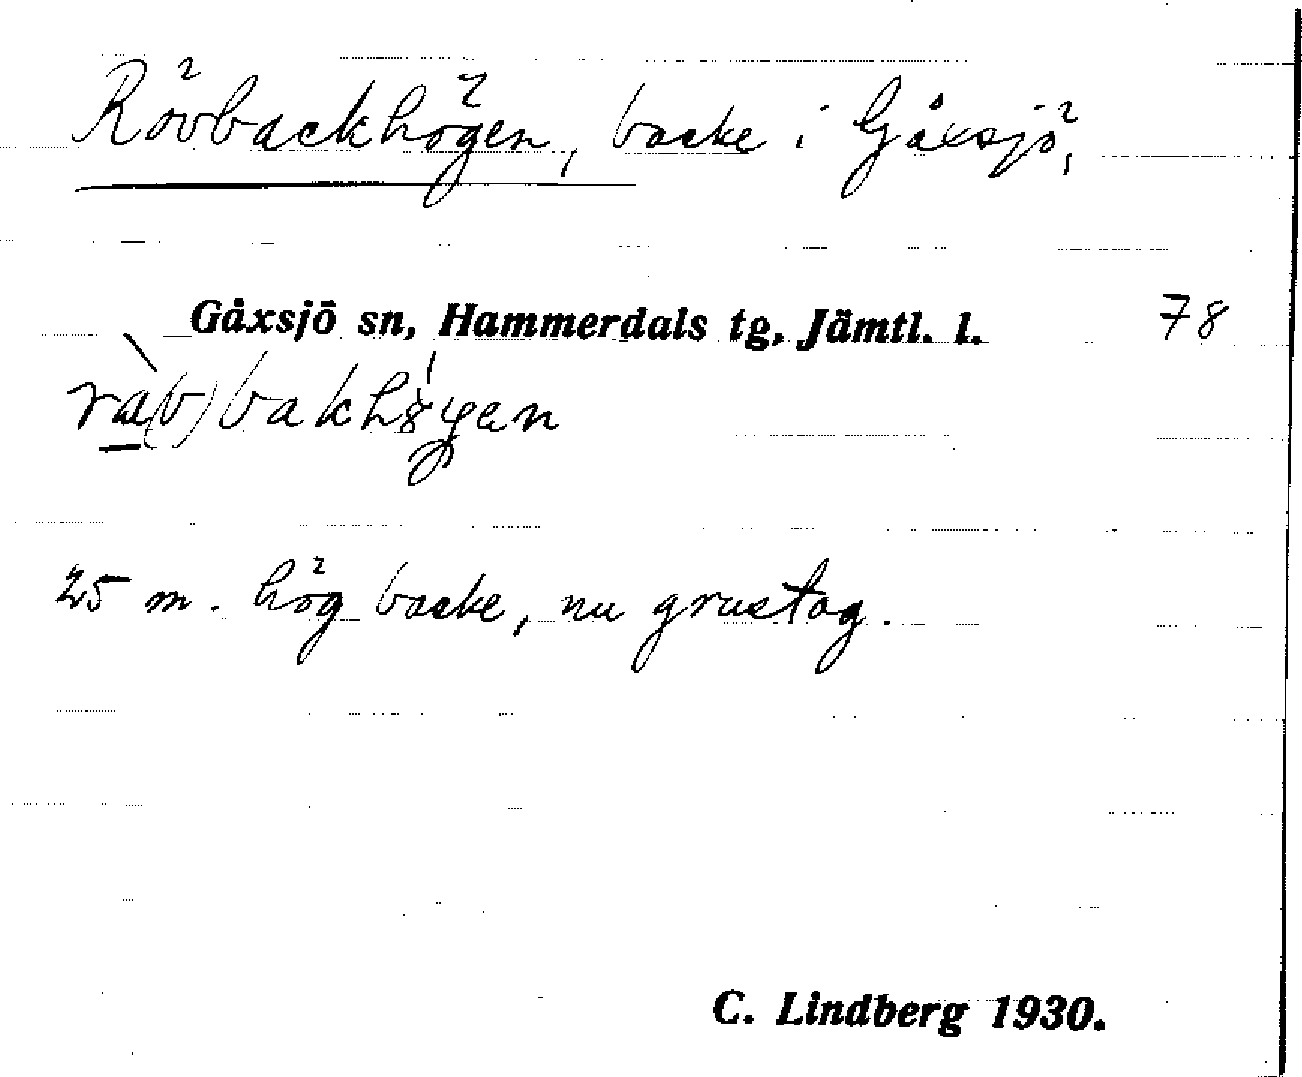 Rövbackhögen, backe i Gåxsjö,
Gåxsjö sn, Hammerdals tg, Jämtl. l. 78
ræ̀(v)bakhö́gen
25 m. hög backe, nu grustag.
C. Lindberg 1930.